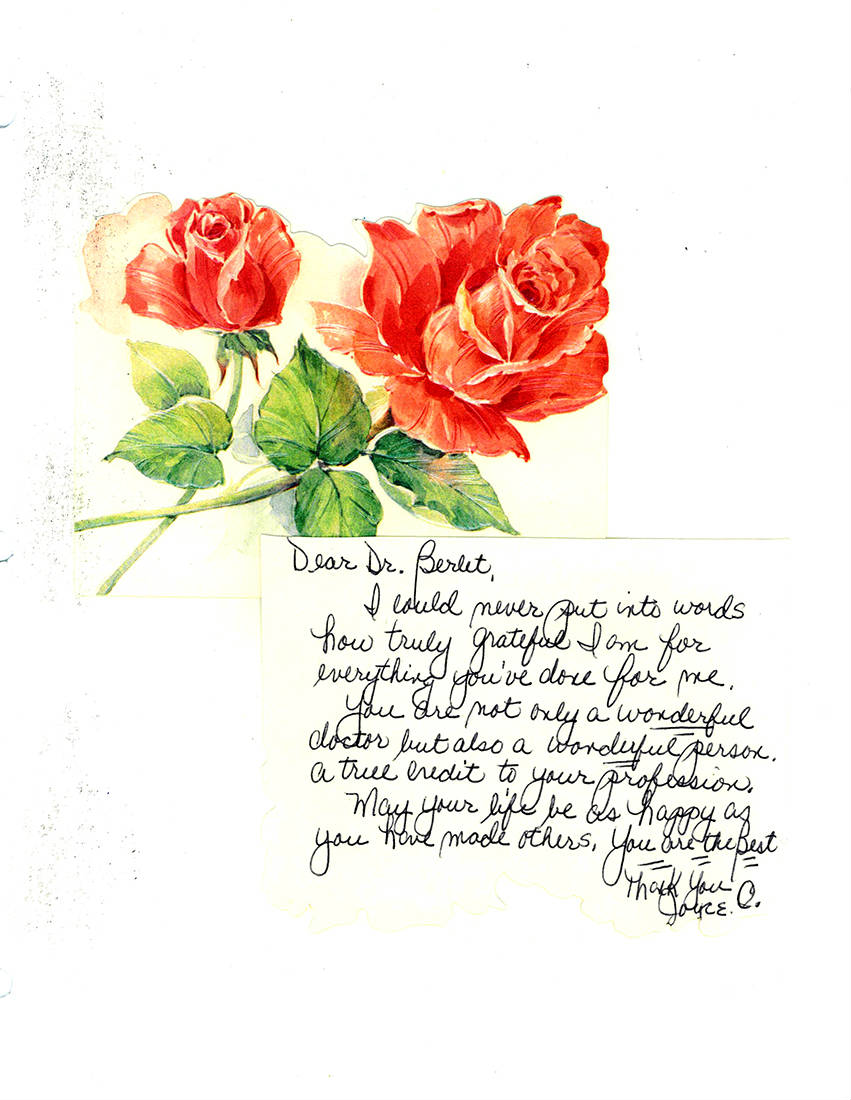 Dear Dr. Berlet,
I could never put into words
how truly grateful I am for
everything you've done for me.
You are not only a wonderful
doctor but also a wonderful person.
A true credit to your profession.
May your life be as happy as
you have made others. You are the Best
Thank You
Joyce. O.